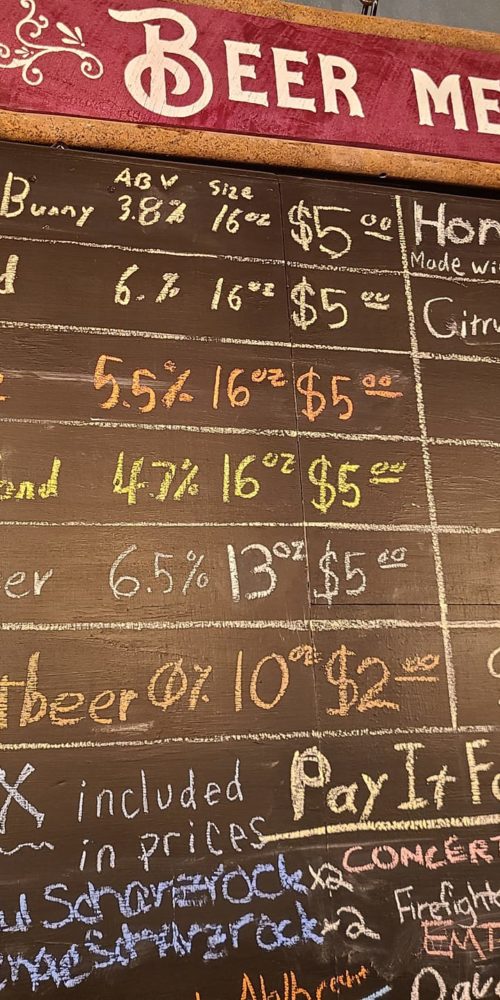 BEER ME
ABV Size
Bunny 3.8% 16oz $5.00 Hon
Made wi
d 6.% 16oz $5.00 Citru
5.5% 16oz $5.00
ond 4.7% 16oz $5.00
er 6.5% 13oz $5.00
tbeer 0% 10oz $2.00
X included Pay It Fo
in prices
CONCERT
x2 Firefighte
x2 EMT
Dav